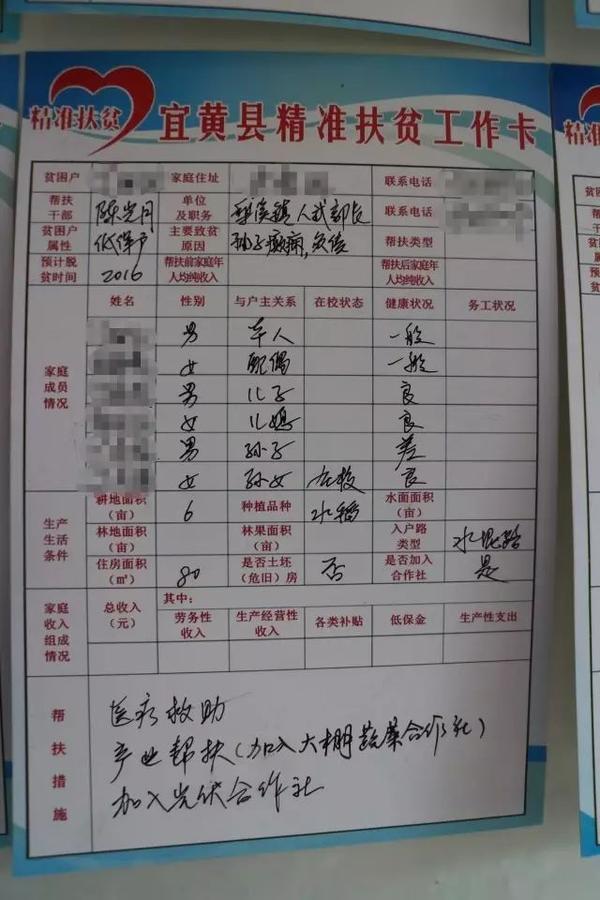 精准扶贫
宜黄县精准扶贫工作卡
贫困户 家庭住址 联系电话
帮扶干部 陈光月 单位及职务 人武部长 联系电话
贫困户属性 低保户 主要致贫原因 孙子癫痫, 帮扶类型
预计脱贫时间 2016 帮扶前家庭年人均纯收入 帮扶后家庭年人均纯收入
家庭成员情况
姓名 性别 与户主关系 在校状态 健康状况 务工状况
男 本人 一般
女 配偶 一般
男 儿子 良
女 儿媳 良
男 孙子 差
女 孙女 在校 良
生产生活条件
耕地面积(亩) 6 种植品种 水稻 水面面积(亩)
林地面积(亩) 林果面积(亩) 入户路类型 水泥路
住房面积(㎡) 80 是否土坯(危旧)房 否 是否加入合作社 是
家庭收入组成情况
总收入(元) 其中:
劳务性收入 生产经营性收入 各类补贴 低保金 生产性支出
帮扶措施
医疗救助
产业帮扶(加入大棚蔬菜合作社)
加入光伏合作社